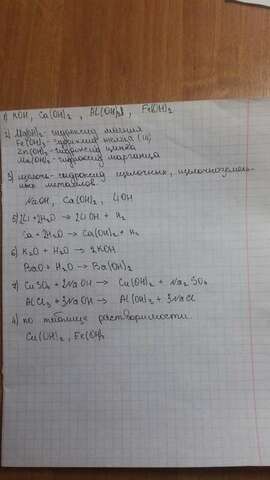 1) KOH, Ca(OH)2, Al(OH)3, Fe(OH)2
2) Mg(OH)2 - гидроксид магния
Fe(OH)3 - гидроксид железа (III)
Zn(OH)2 - гидроксид цинка
Mn(OH)2 - гидроксид марганца
3) щёлочь - гидроксид щелочных, щелочноземель-
ных металлов.
NaOH, Ca(OH)2, LiOH
5) 2Li + 2H2O → 2LiOH + H2
Ca + 2H2O → Ca(OH)2 + H2
6) K2O + H2O → 2KOH
BaO + H2O → Ba(OH)2
7) CuSO4 + 2NaOH → Cu(OH)2 + Na2SO4
AlCl3 + 3NaOH → Al(OH)3 + 3NaCl
4) по таблице растворимости.
Cu(OH)2, Fe(OH)2